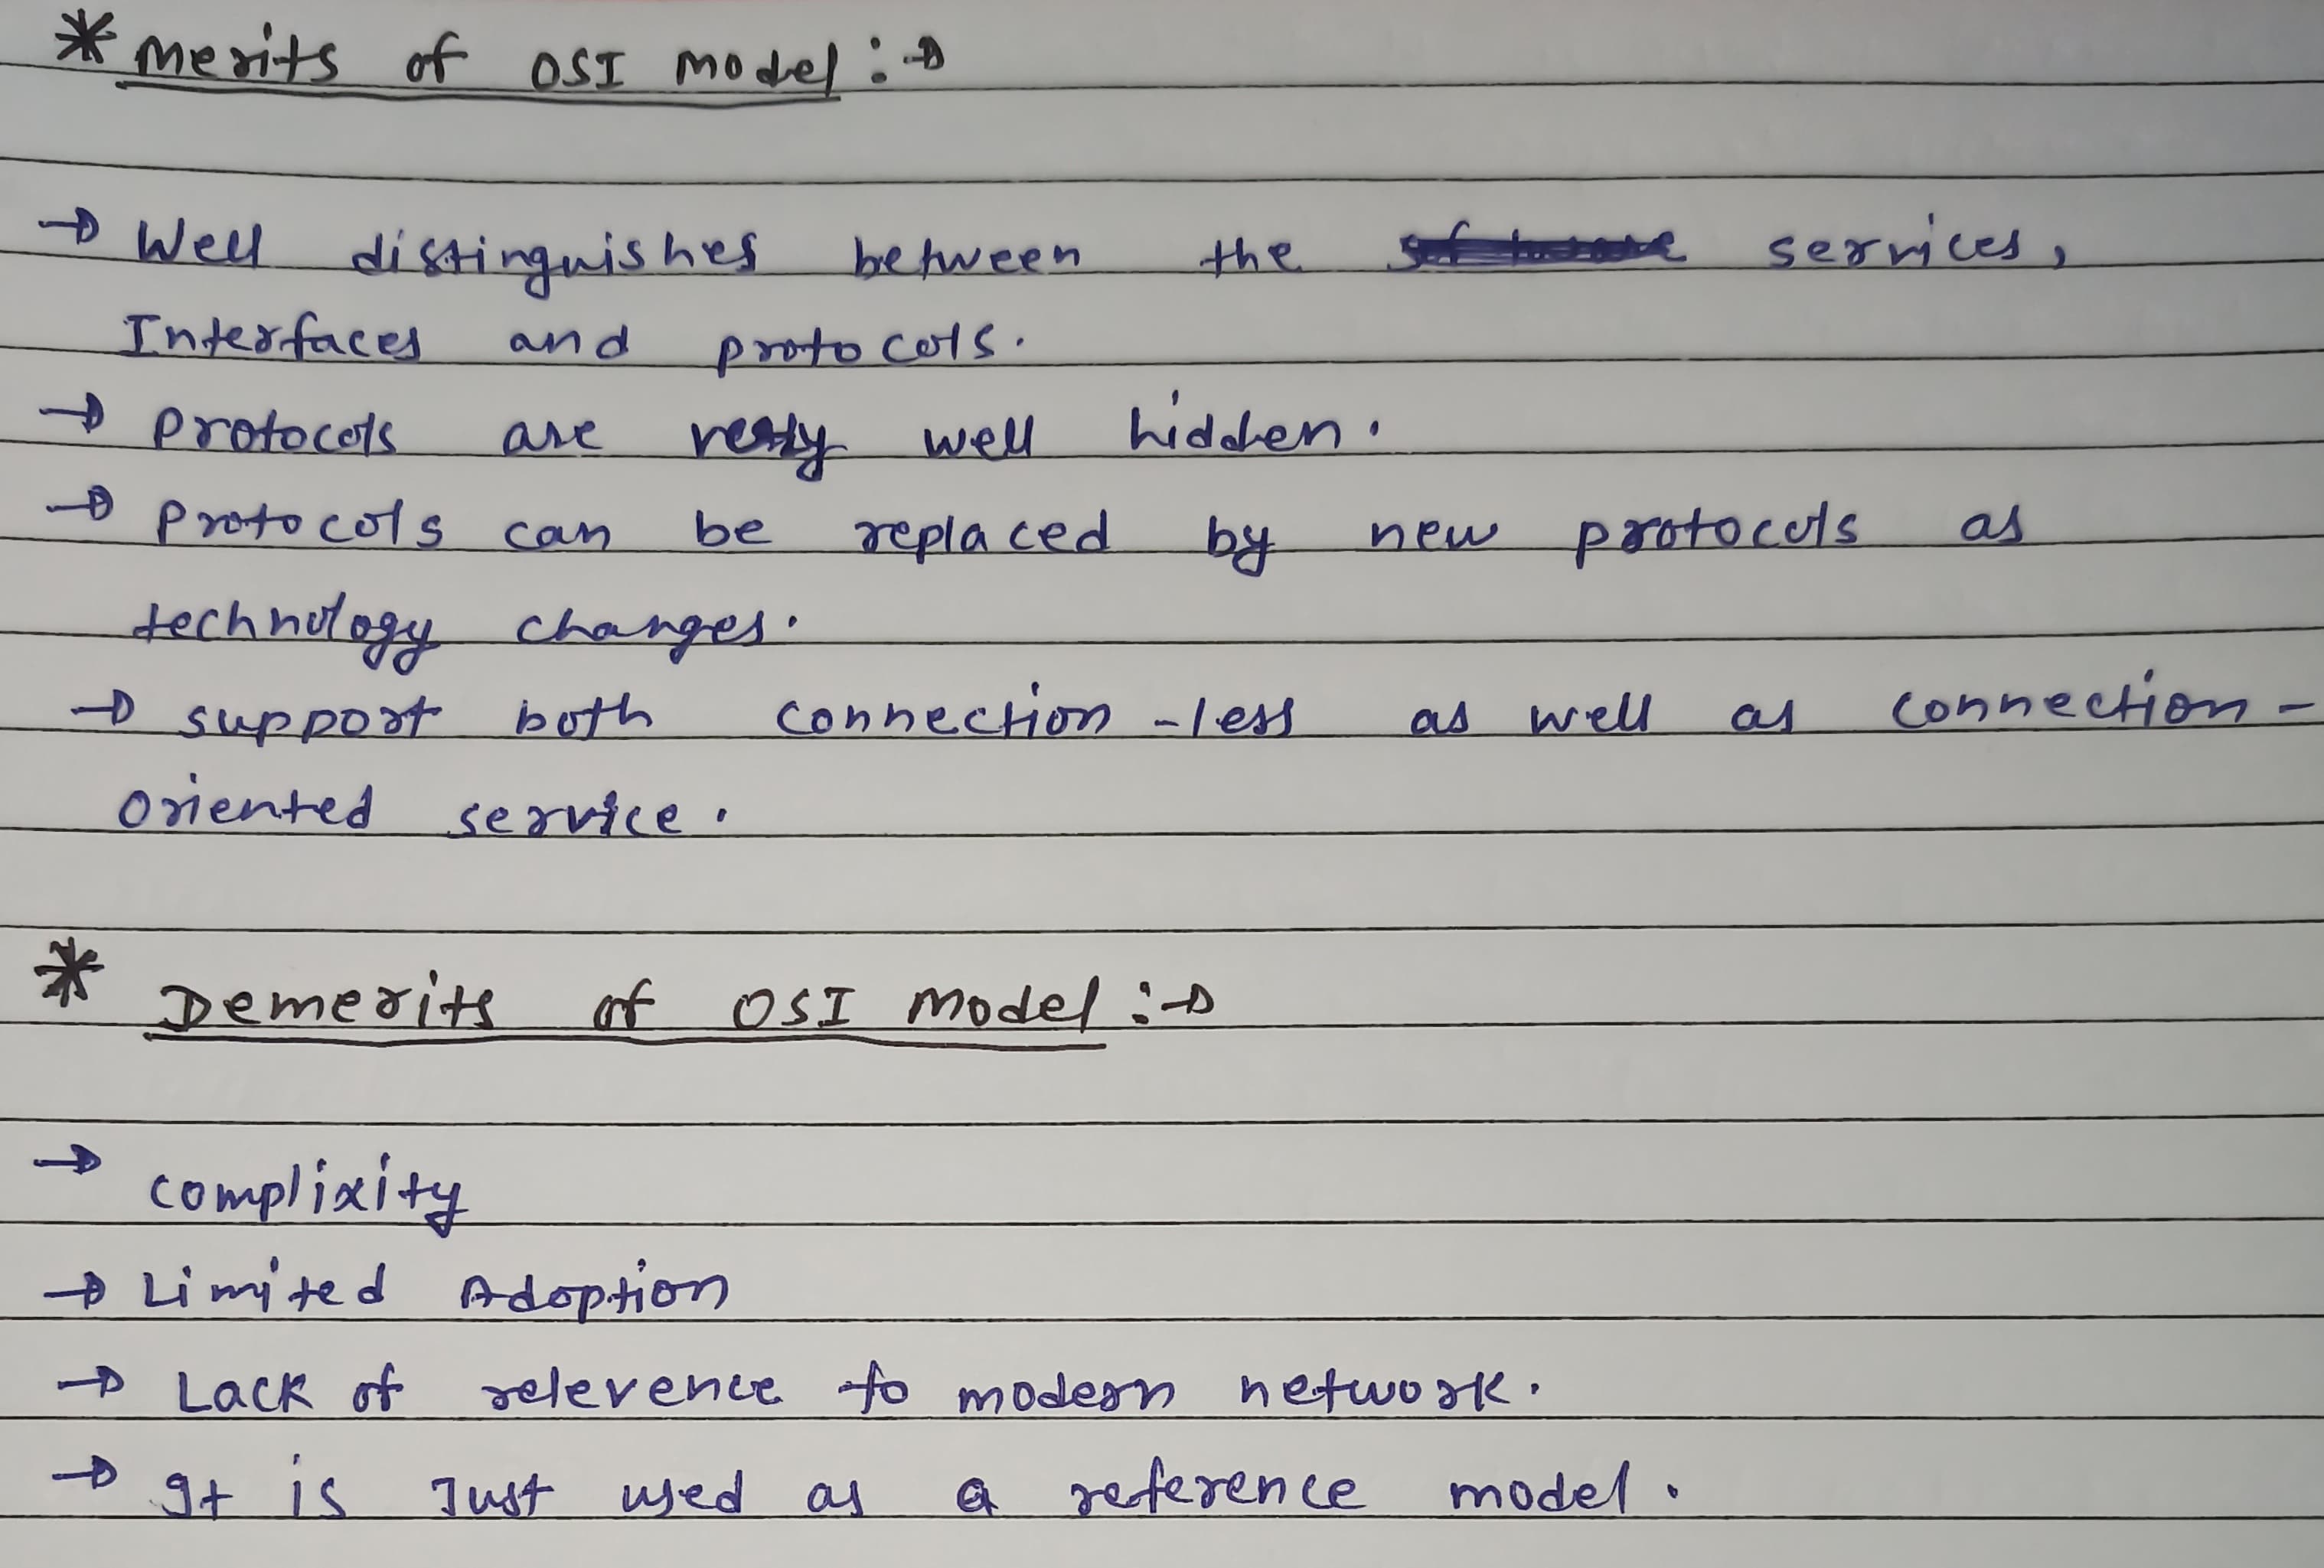 * Merits of OSI Model :→
→ Well distinguishes between the services,
Interfaces and protocols.
→ Protocols are very well hidden.
→ Protocols can be replaced by new protocols as
technology changes.
→ support both connection-less as well as connection-
oriented service.
* Demerits of OSI Model :→
→ complixity
→ Limited Adoption
→ Lack of relevence to modern network.
→ It is Just used as a reference model.